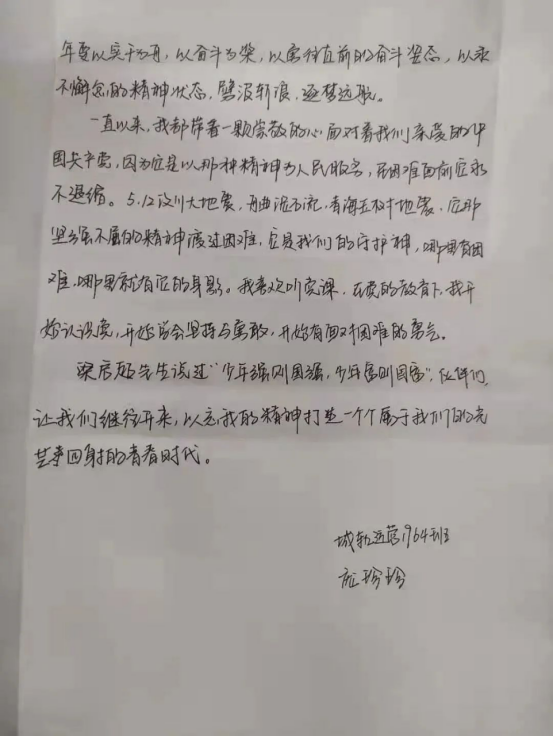 年要以实干为真，以奋斗为荣，以勇往直前的奋斗姿态，以永
不懈怠的精神状态，劈波斩浪，逐梦远航。
一直以来，我都带着一颗崇敬的心面对着我们亲爱的中
国共产党，因为它是以那种精神为人民服务，困难面前它永
不退缩。5.12汶川大地震，舟曲泥石流，青海玉树地震，它那
坚强不屈的精神渡过困难，它是我们的守护神，哪里有困
难，哪里就有它的身影。我喜欢听党课，在党的教育下，我开
始认识党，开始学会坚持与勇敢，开始有面对困难的勇气。
梁启超先生说过"少年强则国强，少年富则国富"，伙伴们，
让我们继往开来，以忘我的精神打造一个个属于我们的光
芒四射的青春时代。
城轨运营1964班
珍珍